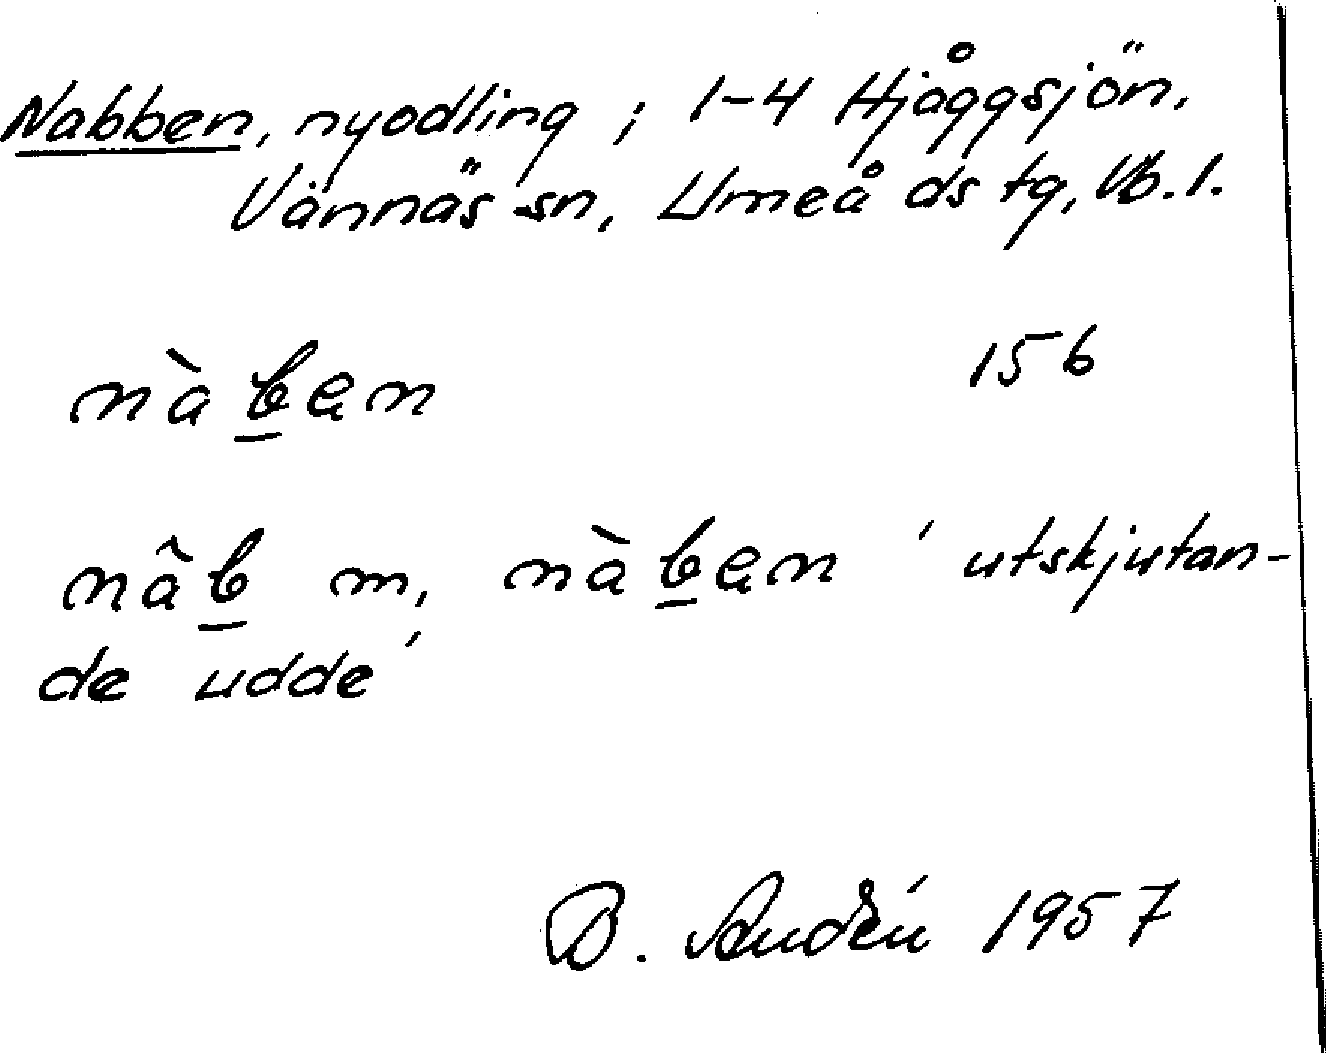 Nabben, nyodling; 1-4 Hjåggsjön,
Vännäs sn, Umeå ds tg, Vb. l.
nàb̲ęn 156
nâb̲ m, nàb̲ęn ' utskjutan-
de udde'
B. 1957